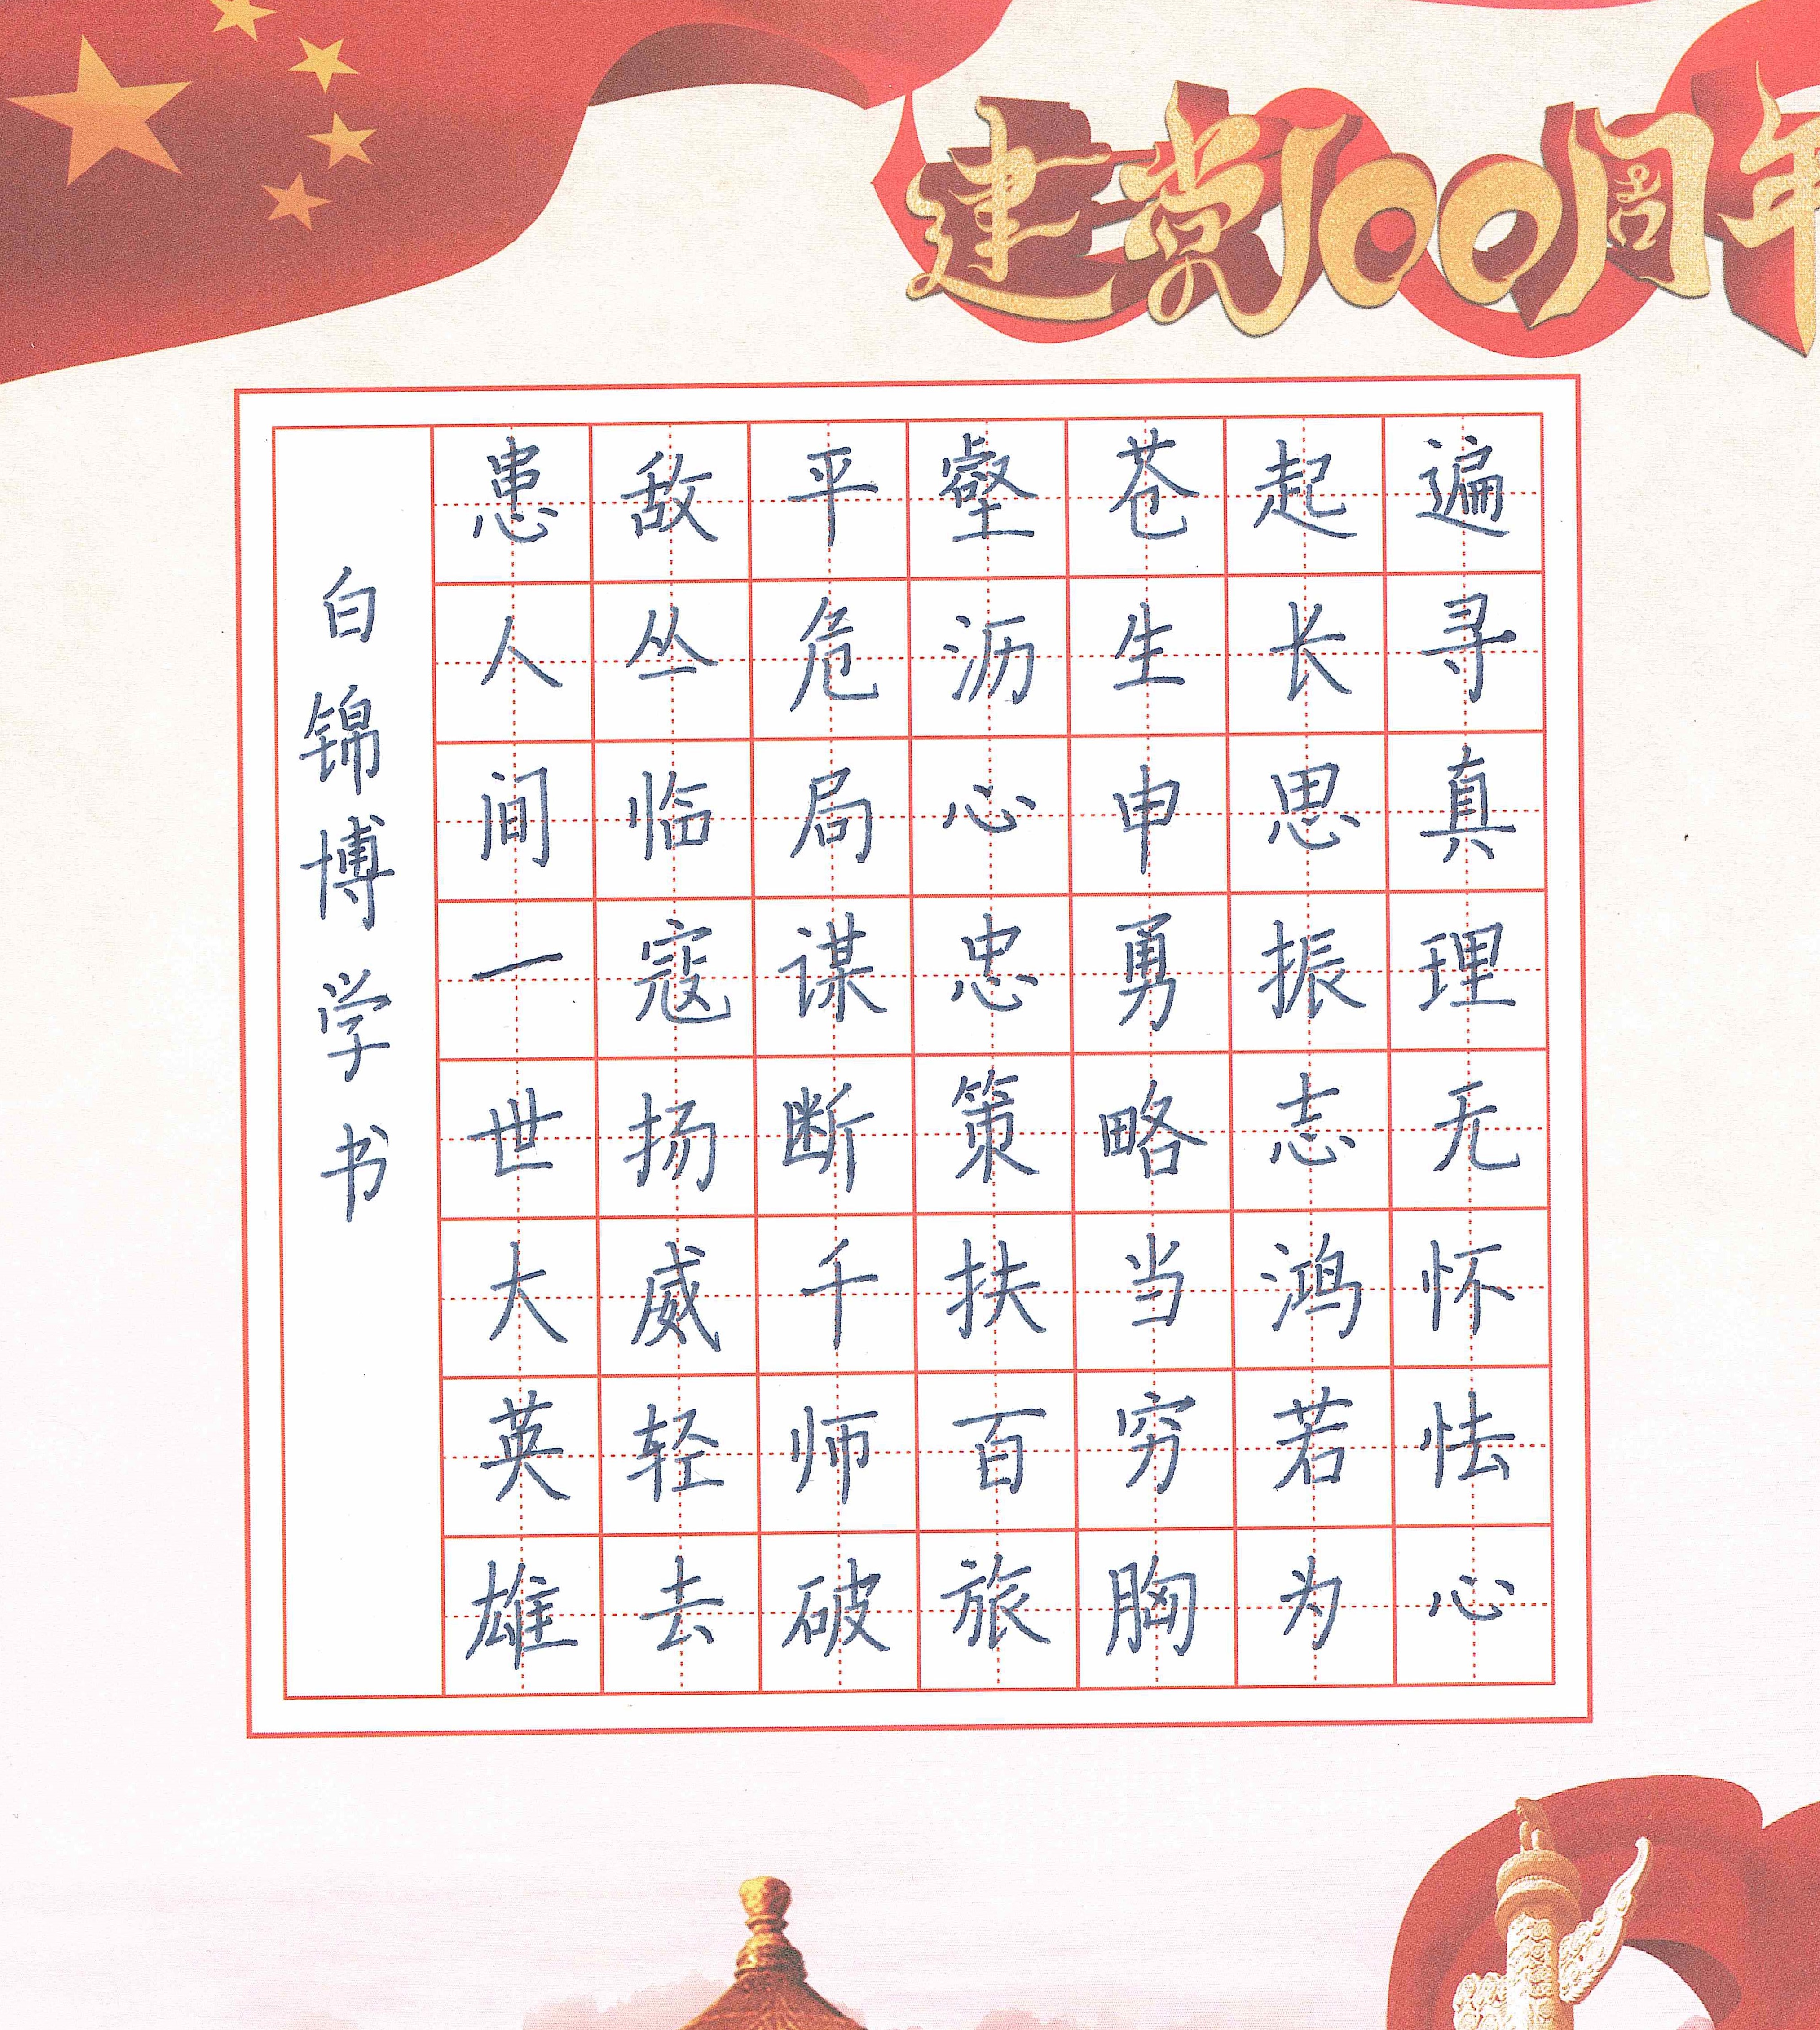 建党100周年
遍寻真理无怀怯心
起长思振志鸿若为
苍生申勇略当穷胸
壑沥心忠策扶百旅
平危局谋断千师破
敌丛临寇扬威轻去
患人间一世大英雄
白锦博学书